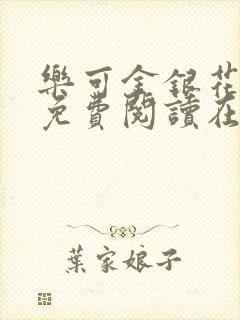 樂可金銀花
免費閱讀在
葉家娘子